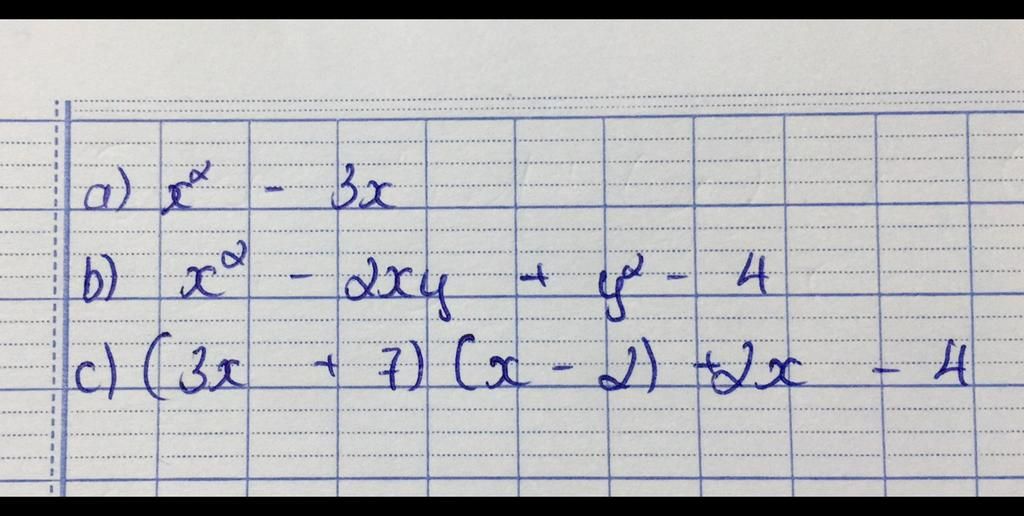 a) x² - 3x
b) x² - 2xy + y² - 4
c) (3x + 7) (x - 2) + 2x - 4